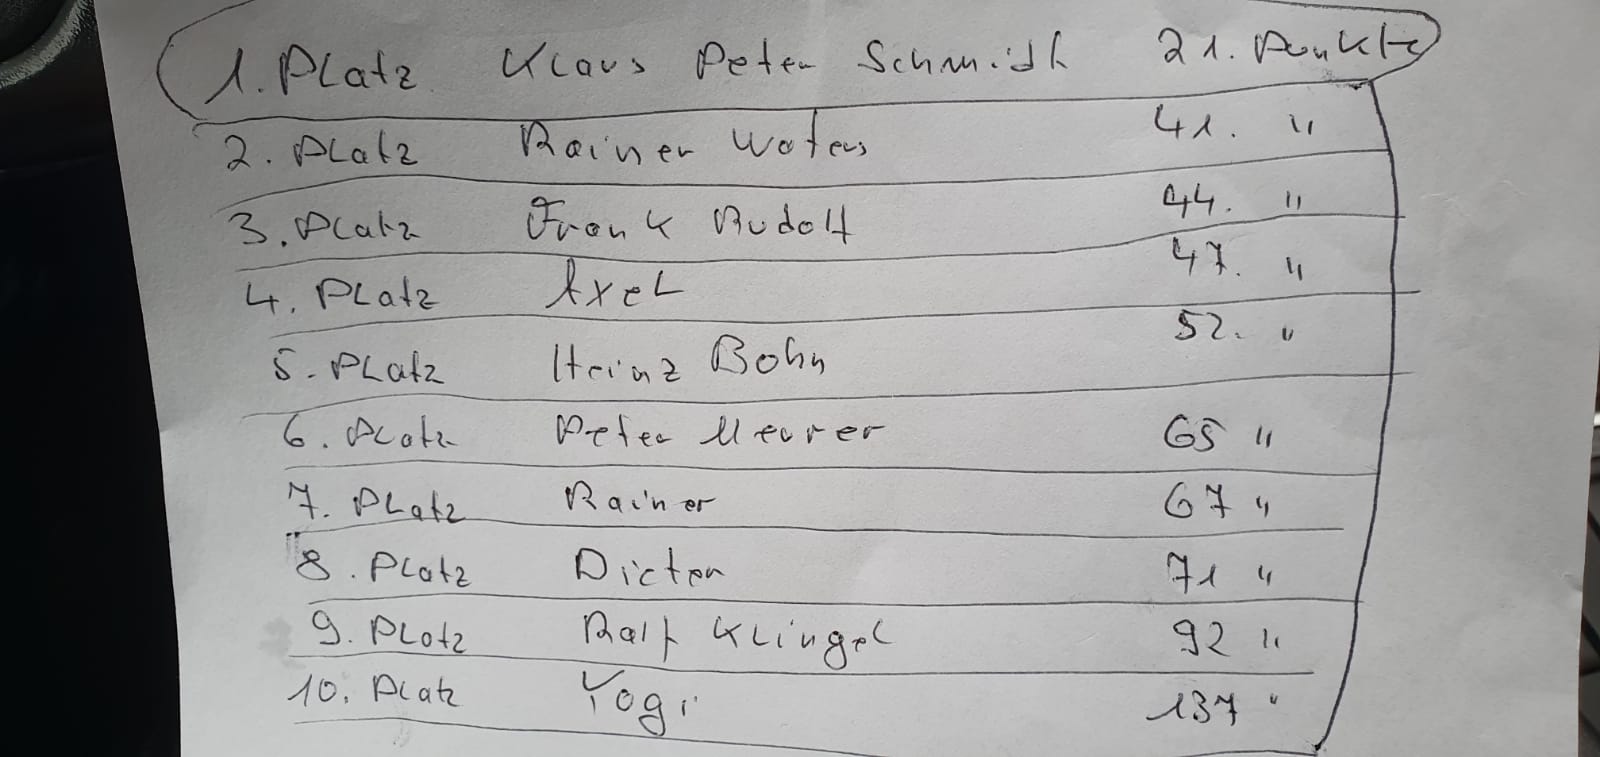 1. Platz Klaus Peter Schmidt 21. Punkte
2. Platz Rainer Woters 41. "
3. Platz Frank Rudolf 44. "
4. Platz Axel 47. "
5. Platz Heinz Bohn 52. "
6. Platz Peter Meurer 65 "
7. Platz Rainer 67 "
8. Platz Dieter 71 "
9. Platz Ralf Klingel 92 "
10. Platz Yogi 137 "